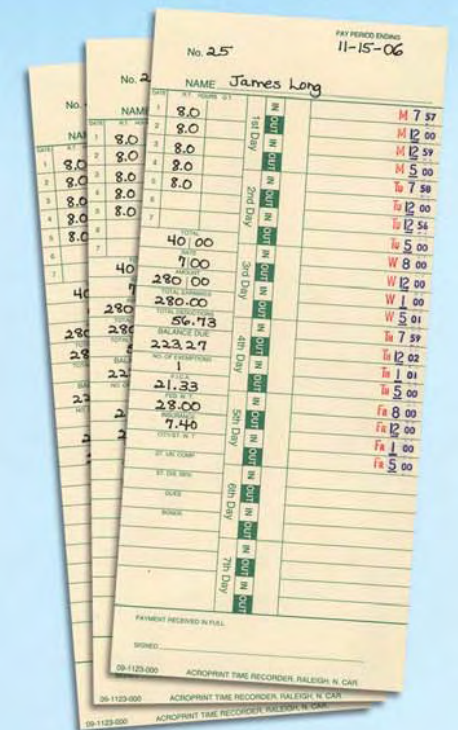 PAY PERIOD ENDING
No. 25 11-15-06
NAME James Long
DATE R.T. HOURS O.T.
1 8.0
2 8.0
3 8.0
4 8.0
5 8.0
6
7
TOTAL
40 00
RATE
7 00
AMOUNT
280 00
TOTAL EARNINGS
280.00
TOTAL DEDUCTIONS
56.73
BALANCE DUE
223.27
NO. OF EXEMPTIONS
1
F.I.C.A.
21.33
FED. W. T.
28.00
INSURANCE
7.40
CITY/ST. W. T.
ST. UN. COMP
ST. DIS. INS.
DUES
BONDS
1st Day IN OUT IN OUT
2nd Day IN OUT IN OUT
3rd Day IN OUT IN OUT
4th Day IN OUT IN OUT
5th Day IN OUT IN OUT
6th Day IN OUT IN OUT
7th Day IN OUT IN OUT
M 7 57
M 12 00
M 12 59
M 5 00
Tu 7 58
Tu 12 00
Tu 12 56
Tu 5 00
W 8 00
W 12 00
W 1 00
W 5 01
Th 7 59
Th 12 02
Th 1 01
Th 5 00
Fr 8 00
Fr 12 00
Fr 1 00
Fr 5 00
PAYMENT RECEIVED IN FULL
SIGNED
09-1123-000 ACROPRINT TIME RECORDER, RALEIGH, N. CAR.
No. 2
NAM
DATE R.T.
1 8.0
2 8.0
3 8.0
4 8.0
5 8.0
6
7
40
280
280
09-1123-000 ACROPRINT TIME RECORDER, RALEIGH, N. CAR.
No.
NA
DATE
1 8.0
2 8.0
3 8.0
4 8.0
5 8.0
6
7
09-1123-000 ACROPRINT TIME RECORDER, RALEIGH, N. CAR.